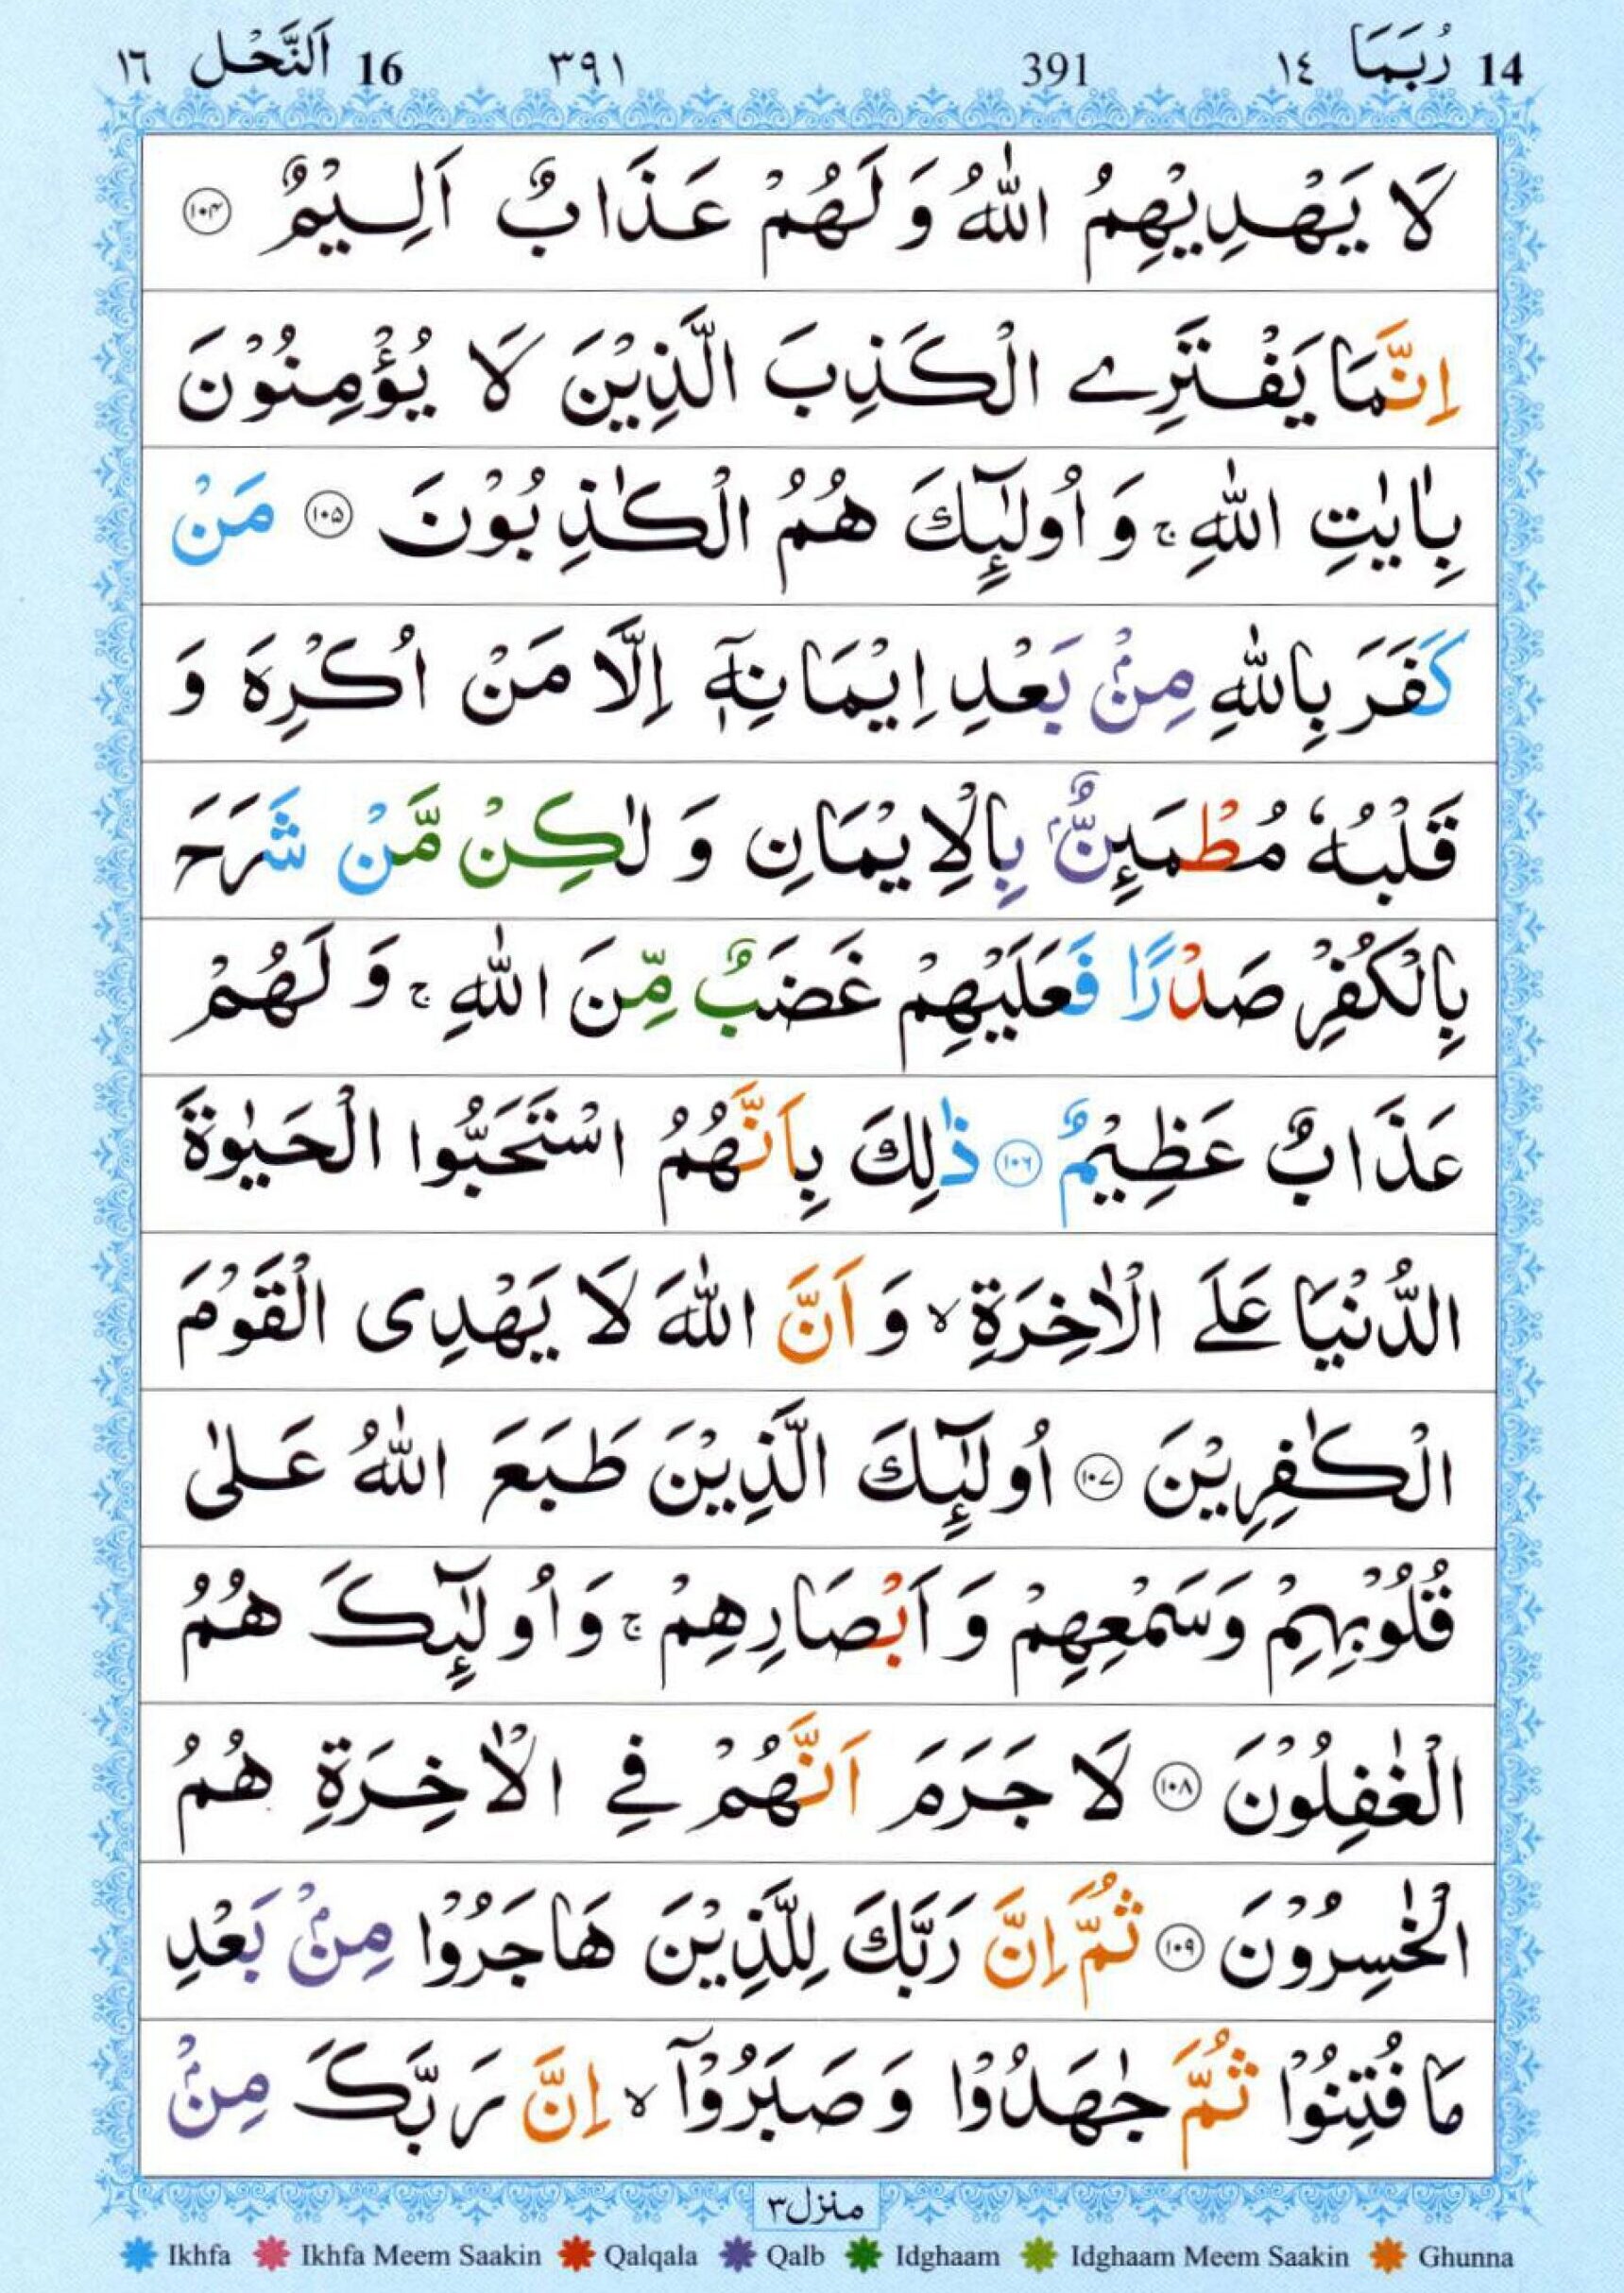 14 رُبَمَا ١٤ 391 ٣٩١ 16 اَلنَّحْل ١٦
لَا يَهْدِيْهِمُ اللّٰهُ وَ لَهُمْ عَذَابٌ اَلِيْمٌ ۝۱۰۴
اِنَّمَا يَفْتَرِے الْكَذِبَ الَّذِيْنَ لَا يُؤْمِنُوْنَ
بِاٰيٰتِ اللّٰهِ ۚ وَ اُولٰٓئِكَ هُمُ الْكٰذِبُوْنَ ۝۱۰۵ مَنْ
كَفَرَ بِاللّٰهِ مِنْۢ بَعْدِ اِيْمَانِهٖۤ اِلَّا مَنْ اُكْرِهَ وَ
قَلْبُهٗ مُطْمَئِنٌّۢ بِالْاِيْمَانِ وَ لٰكِنْ مَّنْ شَرَحَ
بِالْكُفْرِ صَدْرًا فَعَلَيْهِمْ غَضَبٌ مِّنَ اللّٰهِ ۚ وَ لَهُمْ
عَذَابٌ عَظِيْمٌ ۝۱۰۶ ذٰلِكَ بِاَنَّهُمُ اسْتَحَبُّوا الْحَيٰوةَ
الدُّنْيَا عَلَے الْاٰخِرَةِ ۙ وَ اَنَّ اللّٰهَ لَا يَهْدِى الْقَوْمَ
الْكٰفِرِيْنَ ۝۱۰۷ اُولٰٓئِكَ الَّذِيْنَ طَبَعَ اللّٰهُ عَلٰى
قُلُوْبِهِمْ وَسَمْعِهِمْ وَ اَبْصَارِهِمْ ۚ وَاُولٰٓئِكَ هُمُ
الْغٰفِلُوْنَ ۝۱۰۸ لَا جَرَمَ اَنَّهُمْ فِے الْاٰخِرَةِ هُمُ
الْخٰسِرُوْنَ ۝۱۰۹ ثُمَّ اِنَّ رَبَّكَ لِلَّذِيْنَ هَاجَرُوْا مِنْۢ بَعْدِ
مَا فُتِنُوْا ثُمَّ جٰهَدُوْا وَ صَبَرُوْۤا ۙ اِنَّ رَبَّكَ مِنْۢ
منزل٣
Ikhfa Ikhfa Meem Saakin Qalqala Qalb Idghaam Idghaam Meem Saakin Ghunna